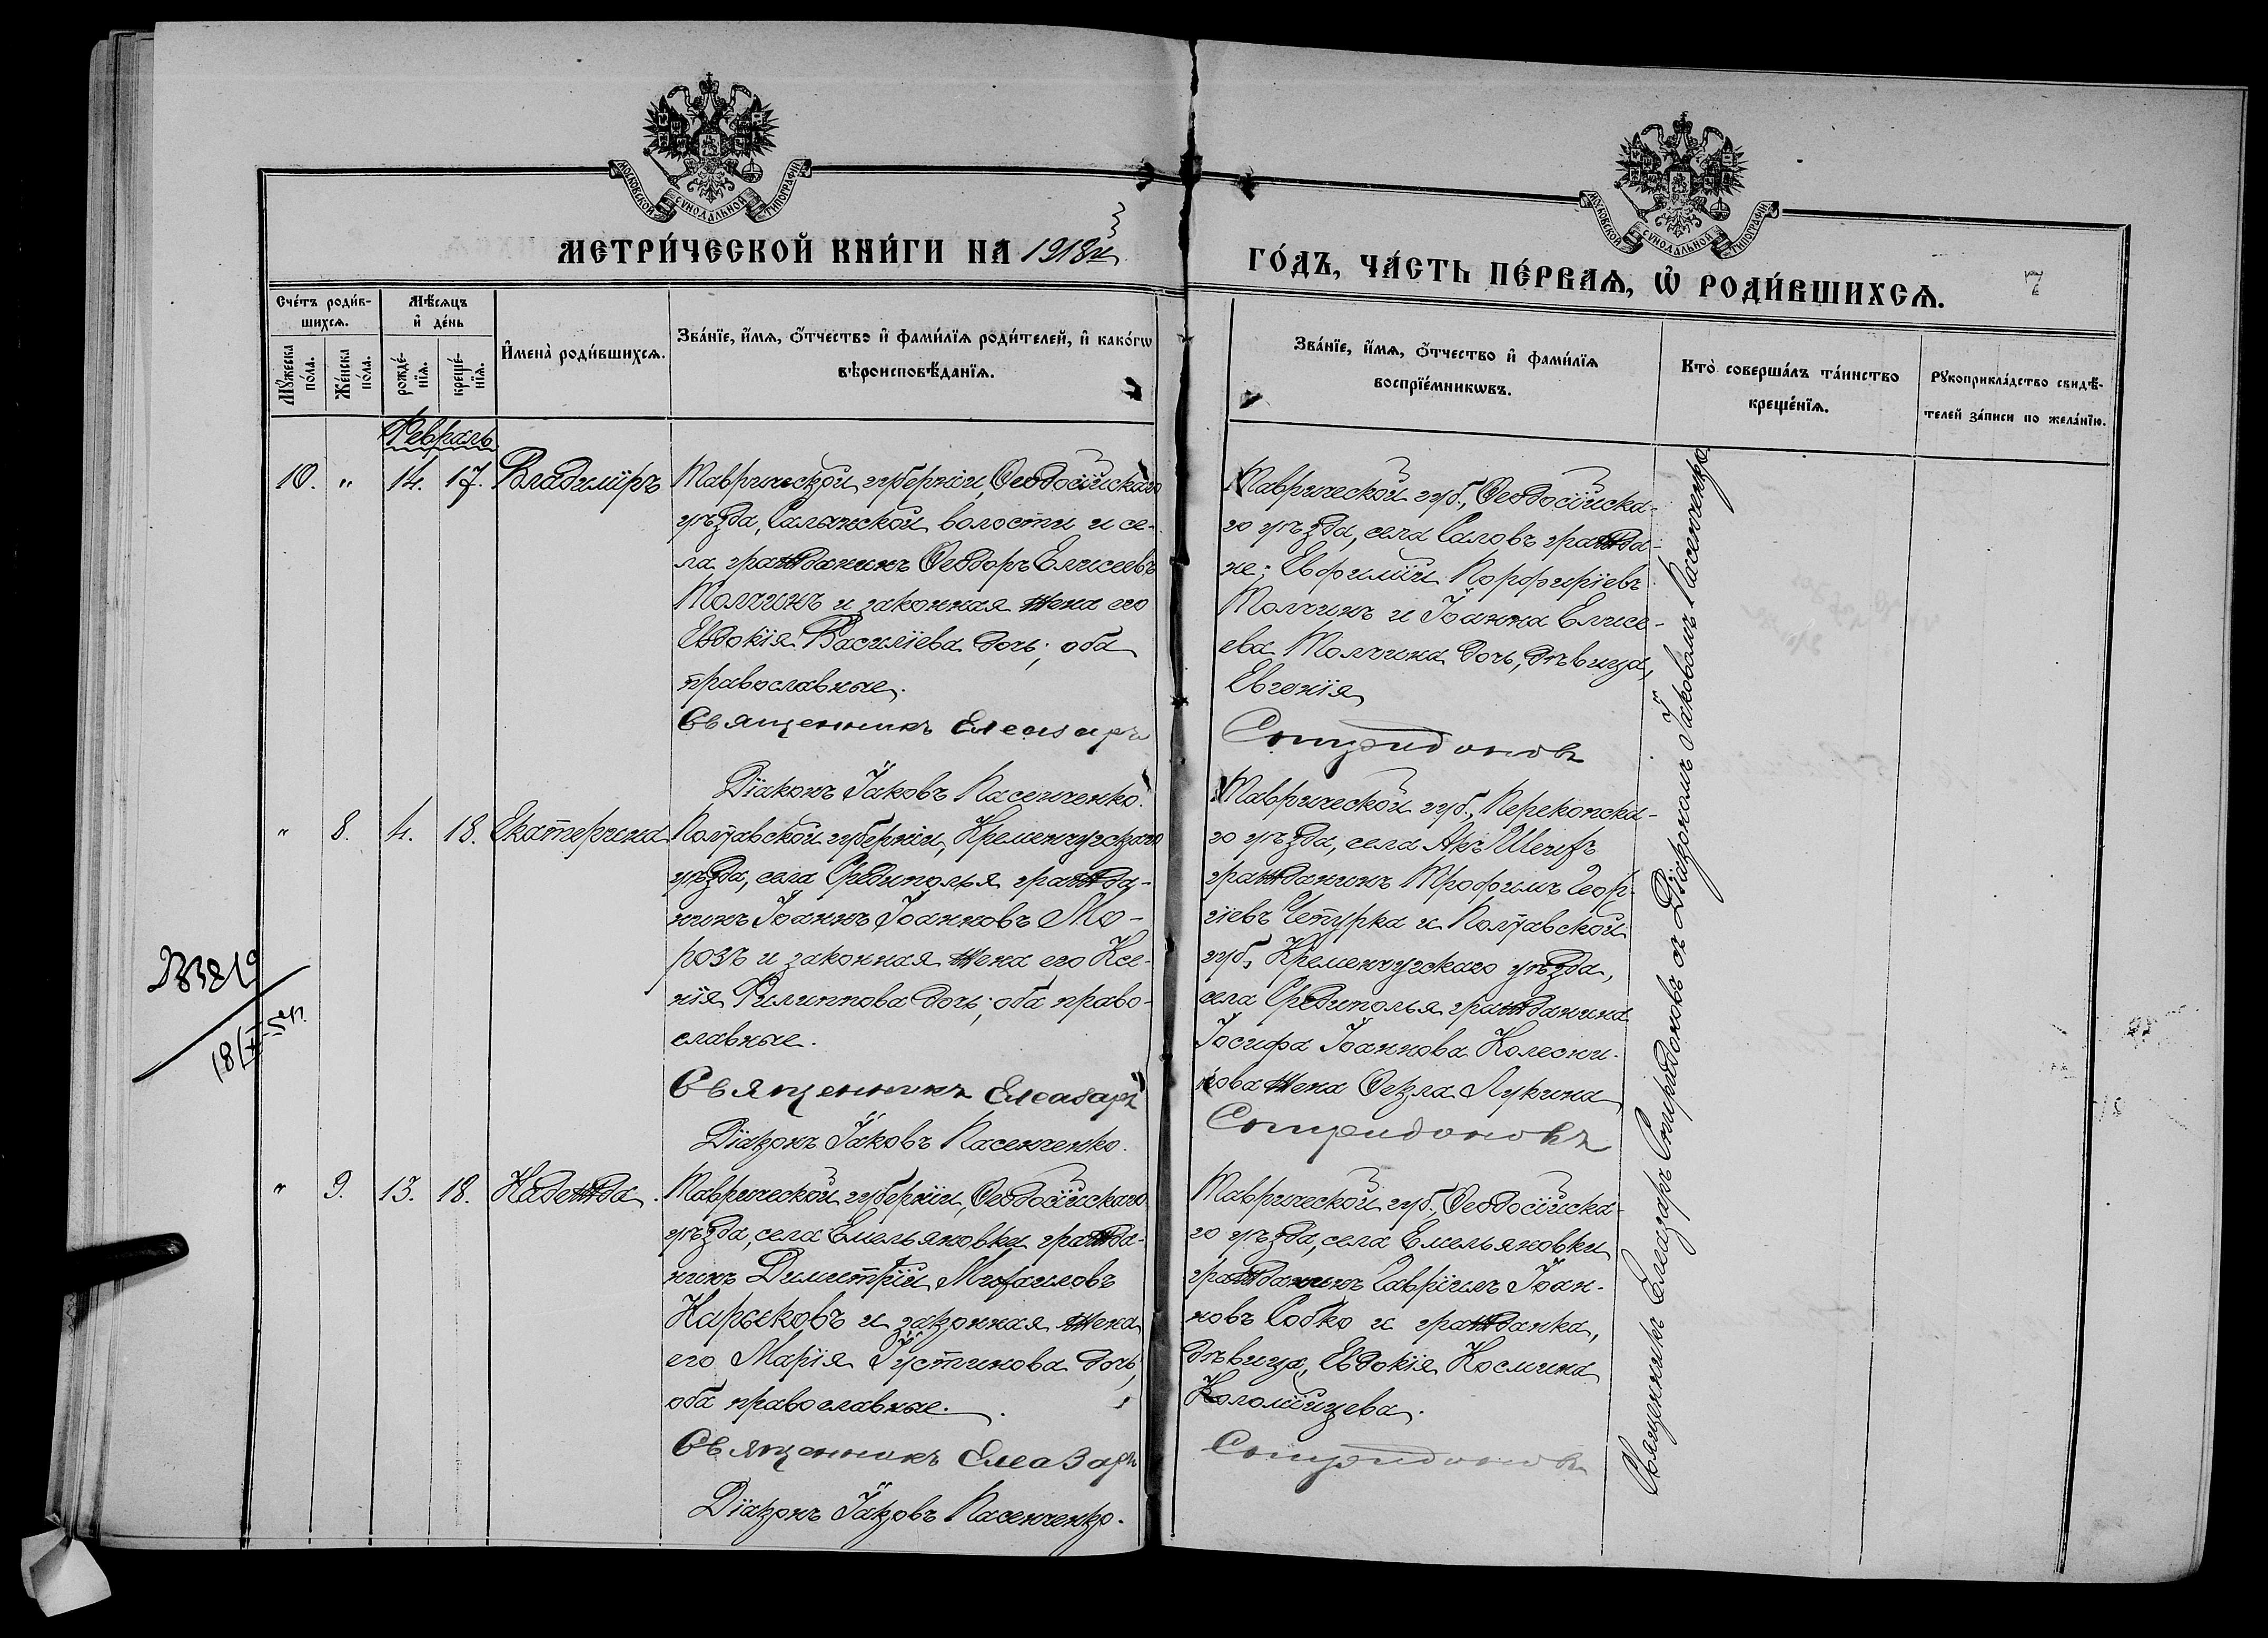 МОСКОВСКОЙ СѴНОДАЛЬНОЙ ТИПОГРАФІИ
МОСКОВСКОЙ СѴНОДАЛЬНОЙ ТИПОГРАФІИ
МЕТРИ́ЧЕСКОЙ КНИ́ГИ НА 1918й
ГО́ДЪ, ЧА́СТЬ ПЕ́РВАѦ, Ѡ҆ РОДИ́ВШИХСѦ.
7
Сче́тъ роди́в-
шихсѧ.
Мꙋ́жеска
по́ла.
Же́нска
по́ла.
Мѣ́сѧцъ
и҆ де́нь
рожде́-
нїѧ.
креще́-
нїѧ.
И҆мена̀ роди́вшихсѧ.
Зва́нїе, и҆́мѧ, ѻ҆́тчество и҆ фами́лїѧ роди́телей, и҆ како́гѡ
вѣроисповѣ́данїѧ.
Зва́нїе, и҆́мѧ, ѻ҆́тчество и҆ фами́лїѧ
воспрїе́мникѡвъ.
Кто̀ соверша́лъ та́инство
креще́нїѧ.
Рꙋкоприкла́дство свидѣ́-
телей за́писи по жела́нїю.
Февраль
10. " 14. 17. Владиміръ
Таврической губерніи, Ѳеодосійскаго
уѣзда, Салынской волости и се-
ла гражданинъ Ѳеодоръ Елисеевъ
Толчинъ и законная жена его
Евдокія Василіева дочь; оба
православные.
Священникъ Елеазаръ
Діаконъ Іаковъ Пасенченко.
Таврической губ., Ѳеодосійска-
го уѣзда, села Саловъ гражда-
не; Евфимій Порфиріевъ
Толчинъ и Іоанна Елисе-
ева Толчина дочь, дѣвица,
Евгенія
Спиридоновъ
" 8. 4. 18. Екатерина
Полтавской губерніи, Кременчугскаго
уѣзда, села Ѳедиполья гражда-
нинъ Іоаннъ Іоанновъ Мо-
розъ и законная жена его Ксе-
нія Филиппова дочь; оба право-
славные.
Священникъ Елеазаръ
Діаконъ Іаковъ Пасенченко.
Таврической губ., Перекопска-
го уѣзда, села Акъ Шейхъ
гражданинъ Трофимъ Геор-
гіевъ Чепурка и Полтавской
губ. Кременчугскаго уѣзда,
села Ѳедиполья гражданина
Іосифа Іоаннова Колесни-
кова жена Ѳекла Лукина
Спиридоновъ
" 9. 13. 18. Надежда.
Таврической губерніи, Ѳеодосійскаго
уѣзда, села Емельяновки гражда-
нинъ Димитрій Михаиловъ
Карыковъ и законная жена
его Марія Іустинова дочь;
оба православные.
Священникъ Елеазаръ
Діаконъ Іаковъ Пасенченко.
Таврической губ., Ѳеодосійска-
го уѣзда, села Емельяновки
гражданинъ Гавріилъ Іоан-
новъ Собко и гражданка,
дѣвица, Евдокія Космина
Коломійцева.
Спиридоновъ
Священникъ Елеазаръ Спиридоновъ съ Діакономъ Іаковомъ Пасенченко